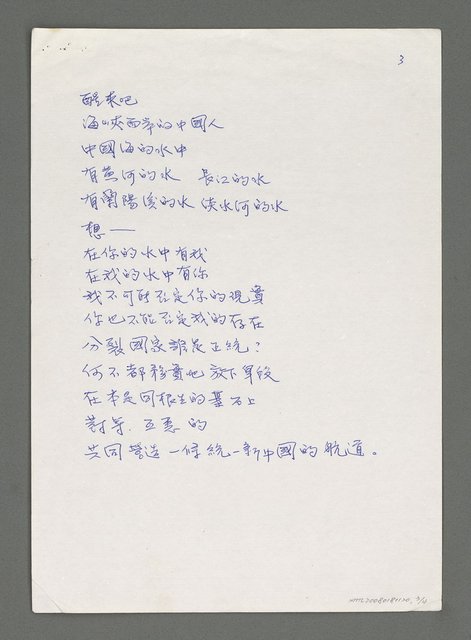 3
醒來吧
海峽兩岸的中國人
中國海的水中
有黃河的水　長江的水
有蘭陽溪的水 淡水河的水
想——
在你的水中有我
在我的水中有你
我不可能否定你的現實
你也不能否定我的存在
分裂國家誰是正統？
何不都務實地放下身段
在本是同根生的基石上
對等．互惠的
共同營造一條統一新中國的航道。